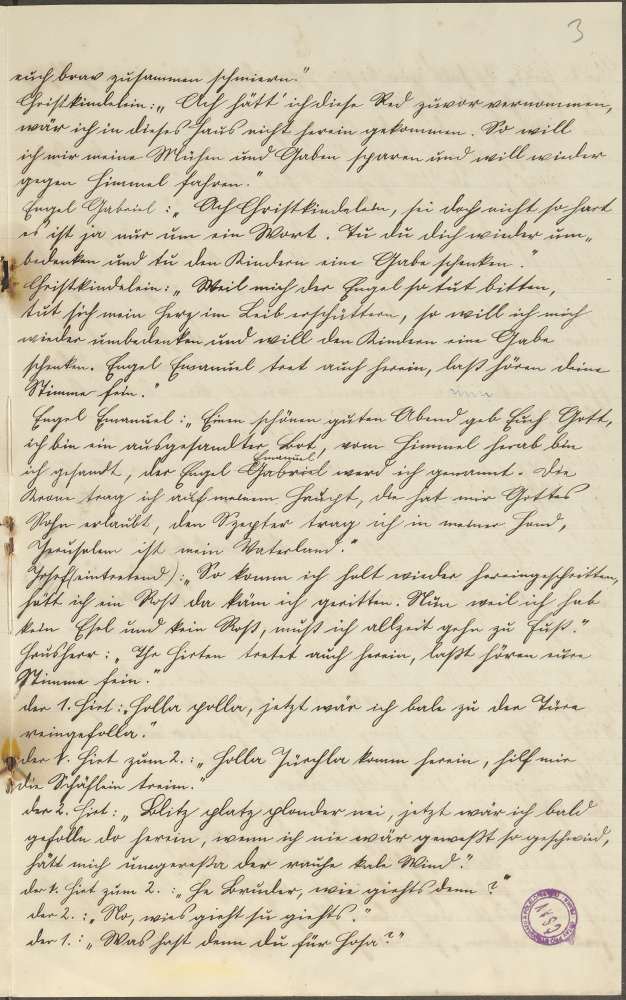 3
euch brav zusammen schmieren."
Christkindelein: „Ach hätt' ich diese Red zuvor vernommen,
wär ich in dieses Haus nicht herein gekommen. So will
ich mir meine Mühen und Gaben sparen und will wieder
gegen Himmel fahren."
Engel Gabriel: „Ach Christkindelein, sei doch nicht so hart
es ist ja nur um ein Wort. Tu du dich wieder um„
bedenken und tu den Kindern eine Gabe schenken."
Christkindelein: „Weil mich der Engel so tut bitten,
tut sich mein Herz im Leib erschüttern, so will ich mich
wieder umbedenken und will den Kindern eine Gabe
schenken. Engel Emanuel tret auch herein, laß hören deine
Stimme fein."
Engel Emanuel: „Einen schönen guten Abend geb Euch Gott,
ich bin ein ausgesandter Bot, vom Himmel herab bin
Emanuel
ich gesandt, der Engel Gabriel werd ich genannt. Die
Kron trag ich auf meinem Haupt, die hat mir Gottes
Sohn erlaubt, den Szepter trag ich in meiner Hand,
Jerusalem ist mein Vaterland."
Josef (eintretend): „So komm ich halt wieder hereingeschritten,
hätt ich ein Roß da käm ich geritten. Nun weil ich hab
kein Esel und kein Roß, muß ich allzeit gehn zu Fuß."
Hausherr: „Ihr Hirten tretet auch herein, laßt hören eure
Stimme fein."
der 1. Hirt: „Holla polla, jetzt wär ich bale zu der Türe
reingefolla."
der 1. Hirt zum 2.: „Holla komm herein, hilf mir
die Schäflein treim."
der 2. Hirt: „Blitz platz plonder nei, jetzt wär ich bald
gefolln do herein, wenn ich nie wär geweßt so geschwied,
hätt mich umgereßa der rauhe kale Wind."
der 1. Hirt zum 2.: „He Bruder, wie giehts denn?"
der 2.: „No, wies gieht su giehts."
der 1.: „Was hast denn du für Hosa?"